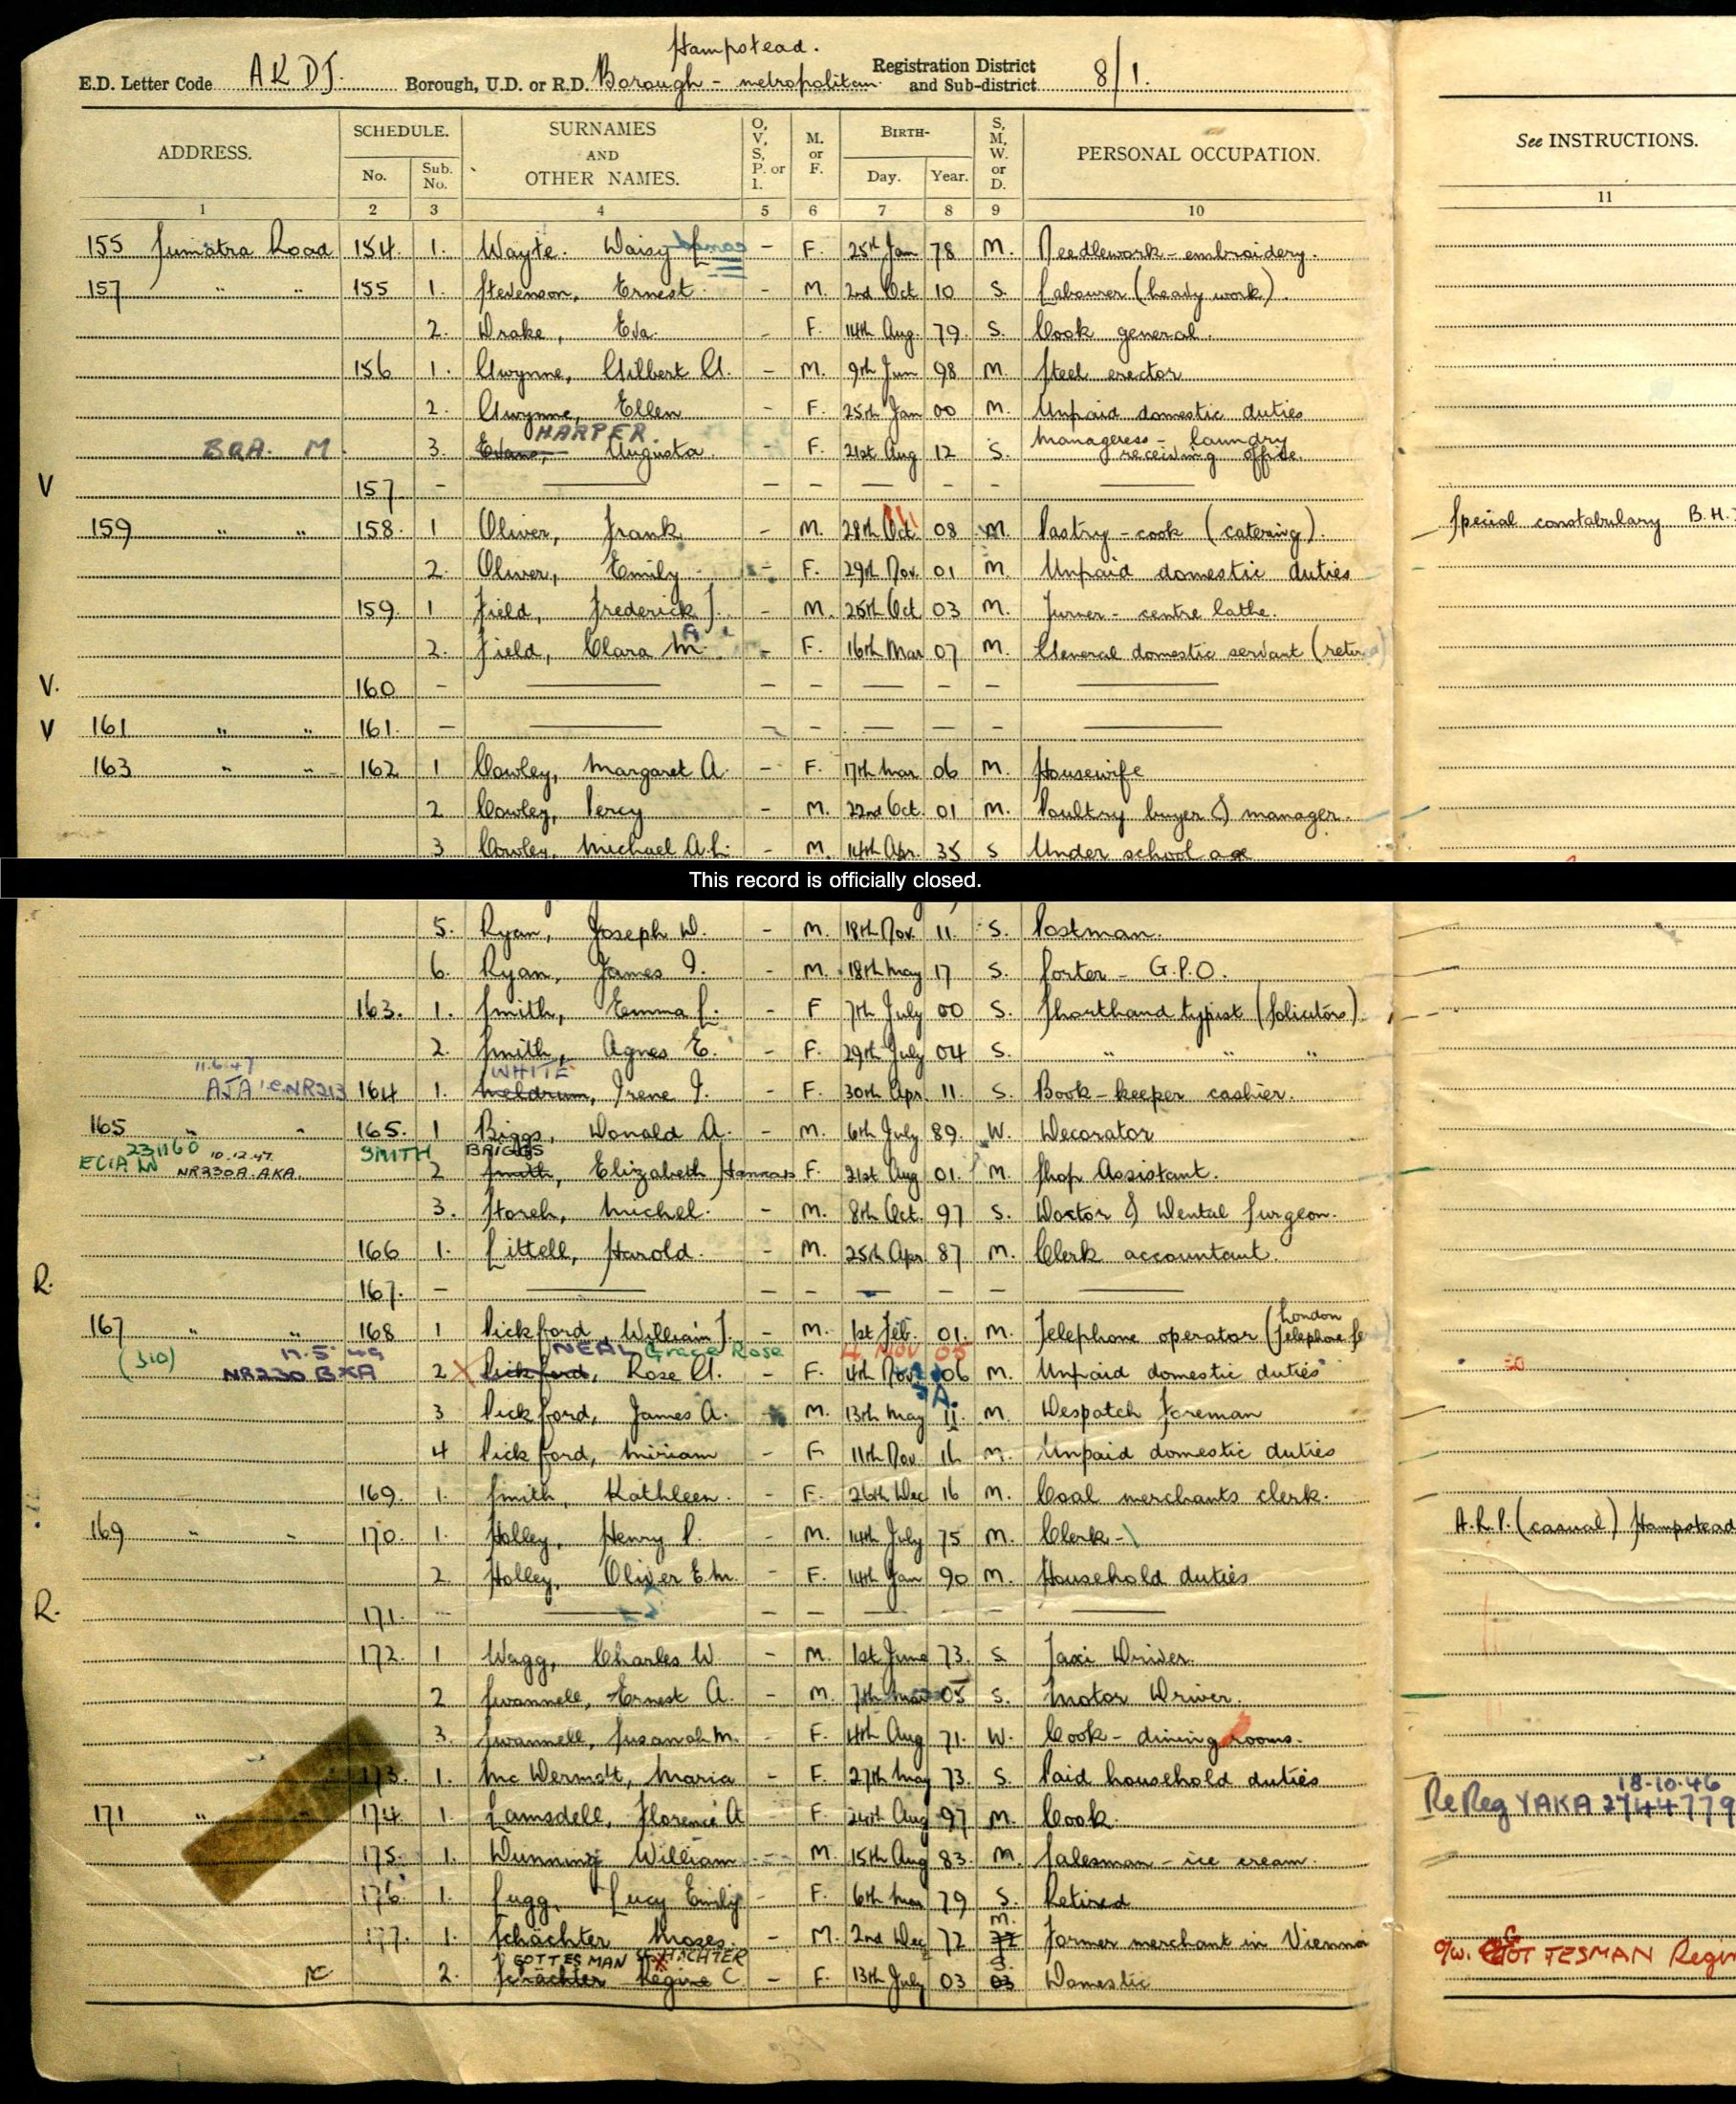 Hampstead.
E.D. Letter Code A K D J. Borough, U.D. or R.D. Borough - metropolitan. Registration District and Sub-district 8/1.
ADDRESS. SCHEDULE. No. Sub. No. SURNAMES AND OTHER NAMES. O, V, S, P. or I. M. or F. BIRTH- Day. Year. S, M, W. or D. PERSONAL OCCUPATION. See INSTRUCTIONS.
1 2 3 4 5 6 7 8 9 10 11
155 Sumatra Road 154. 1. Wayte. Daisy - F. 25th Jan 78 M. Needlework - embroidery.
157 " " 155 1. Stevenson, Ernest. - M. 2nd Oct 10 S. Labourer (heavy work).
2. Drake, Eva. - F. 14th Aug. 79. S. Cook general.
156 1. Gwynne, Gilbert G. - M. 9th Jun 98 M. Steel erector
2. Gwynne, Ellen - F. 25th Jan 00 M. Unpaid domestic duties
HARPER.
BQA. M 3. Evans, Augusta. - F. 21st Aug 12 S. Manageress - laundry receiving office.
V 157 - - - - - -
159 " " 158. 1 Oliver, Frank - M. 28th Oct. 08 M. Pastry - cook (catering). Special constabulary B.H.
2. Oliver, Emily - F. 29th Nov. 01 M. Unpaid domestic duties
159. 1 Field, Frederick J. - M. 25th Oct 03 M. Turner - centre lathe.
2. Field, Clara M. - F. 16th Mar 07 M. General domestic servant (retir
V. 160 - - - - - -
V 161 " " 161. - - - - - -
163 " " 162 1 Cowley, Margaret A. - F. 17th Mar 06 M. Housewife
2 Cowley, Percy - M. 22nd Oct. 01 M. Poultry buyer & manager.
3 Cowley, Michael A.L. - M. 14th Apr. 35 S Under school age
This record is officially closed.
5. Ryan, Joseph D. - M. 18th Nov. 11. S. Postman.
6. Ryan, James I. - M. 18th May 17 S. Porter - G.P.O.
163. 1. Smith, Emma L. - F 7th July 00 S. Shorthand typist (Solicitors).
2. Smith, Agnes E. - F. 29th July 04 S. " " "
11.6.47 WHITE
AJA NR213 164 1. Meldrum, Irene I. - F. 30th Apr. 11. S. Book-keeper cashier.
165 " " 165. 1 Biggs, Donald A. - M. 6th July 89. W. Decorator
231160 10.12.47. SMITH BRIGGS
ECIA LN NR230A. AKA. 2 Smith, Elizabeth Hannah F. 21st Aug 01. M. Shop Assistant.
3. Storch, Michel. - M. 8th Oct. 97 S. Doctor & Dental Surgeon.
166 1. Littell, Harold. - M. 25th Apr. 87 M. Clerk accountant.
R. 167. - - - - - -
167 " " 168 1 Pickford, William J. - M. 1st Feb. 01. M. Telephone operator (London Telephone Se
(310) 17.5.49 NEAL Grace Rose 4. NOV 05
NR230 BXA 2 X Pickford, Rose G. - F. 4th Nov 06 M. Unpaid domestic duties
3 Pickford, James A. M. 13th May 11. M. Despatch Foreman
4 Pickford, Miriam - F 11th Nov. 16 M. Unpaid domestic duties
169. 1. Smith, Kathleen. - F. 26th Dec 16 M. Coal merchants clerk.
169 " " 170. 1. Holley, Henry P. - M. 14th July 75 M. Clerk - A.R.P. (casual) Hampstead
2. Holley, Oliver E.M. - F. 14th Jan 90 M. Household duties
R. 171. - - - - - -
172. 1 Wagg, Charles W. - M. 1st June 73. S. Taxi Driver.
2 Swannell, Ernest A. - M. 7th Mar 05 S. Motor Driver.
3. Swannell, Susanah M. - F. 4th Aug 71. W. Cook - dining rooms.
173. 1. McDermott, Maria - F. 27th May 73. S. Paid household duties
18.10.46
171 " " 174. 1. Lamsdell, Florence A - F. 24th Aug 97 M. Cook. ReReg YAKA 2744779
175. 1. Dunning William - M. 15th Aug 83. M. Salesman - ice cream.
176. 1. Fugg, Lucy Emily - F. 6th Mar 79 S. Retired
177. 1. Schächter Moses. - M. 2nd Dec 72 M. Former merchant in Vienna
GOTTESMAN SCHÄCHTER
2. Schächter Regine C - F. 13th July 03 S. Domestic o/w. GOTTESMAN Regin